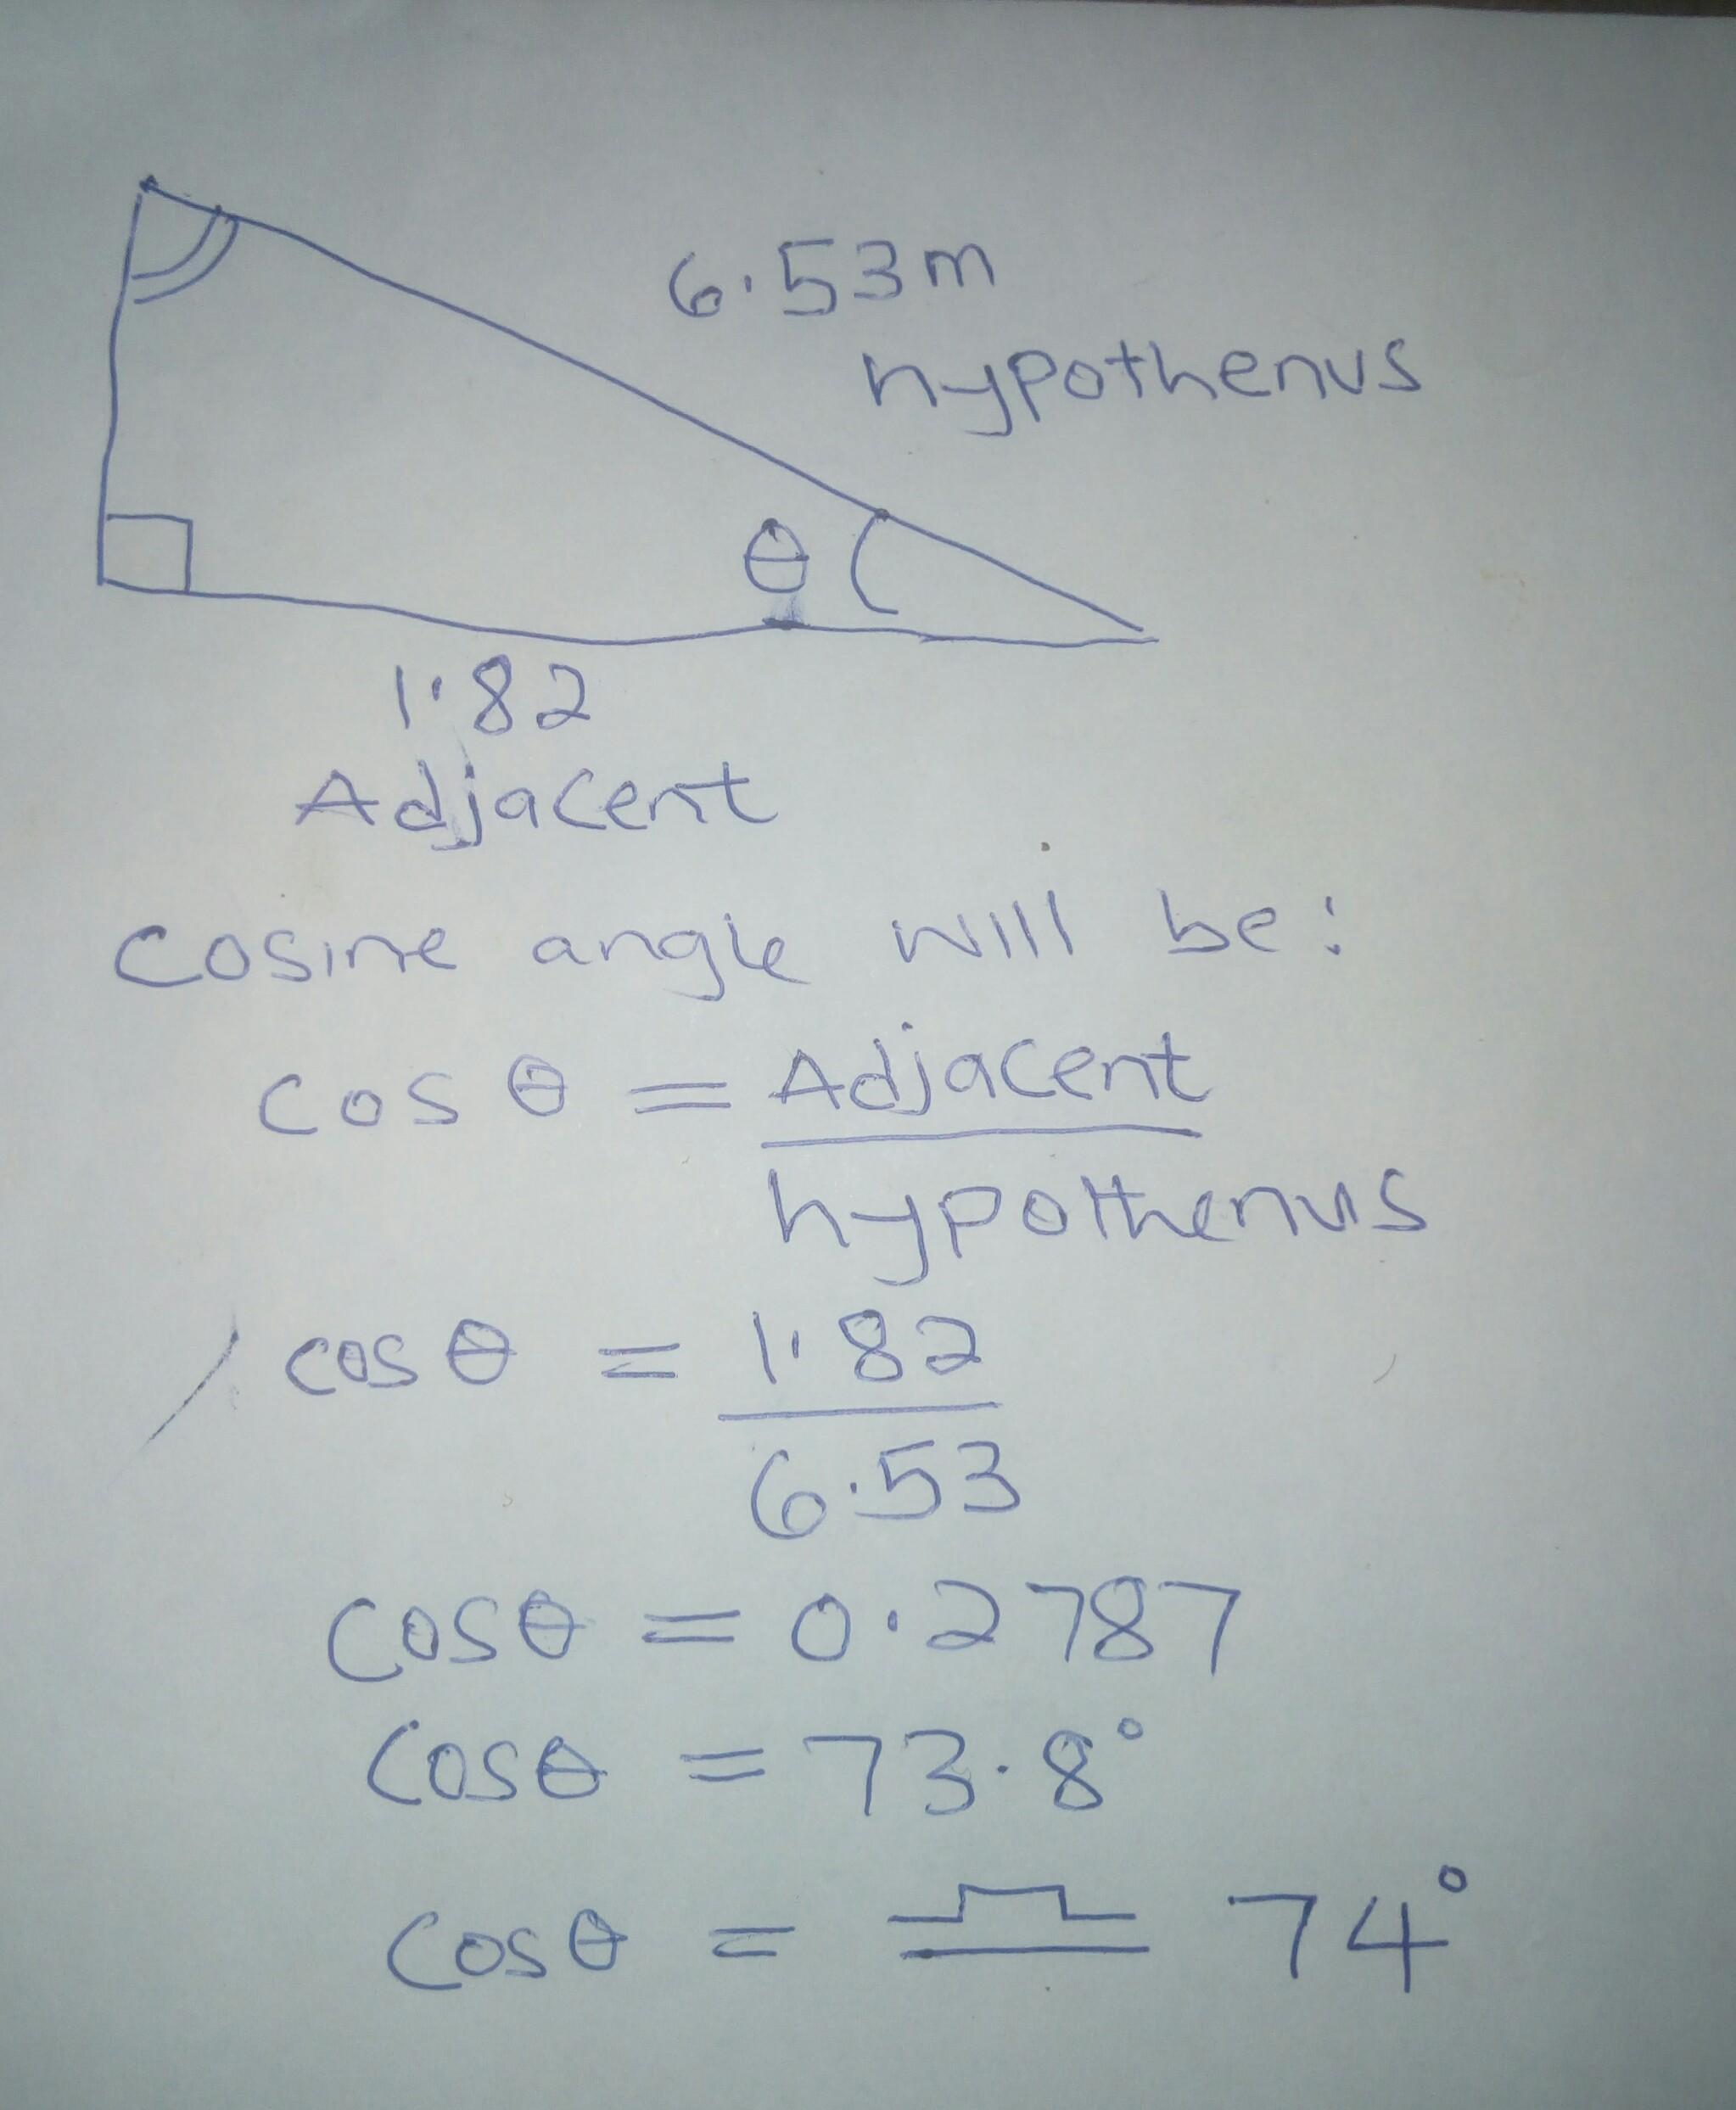 6.53m
hypothenus
θ
1.82
Adjacent
Cosine angle will be:
Cos θ = Adjacent
hypothenus
cos θ = 1.82
6.53
Cosθ = 0.2787
Cosθ = 73.8°
Cosθ = ≏ 74°